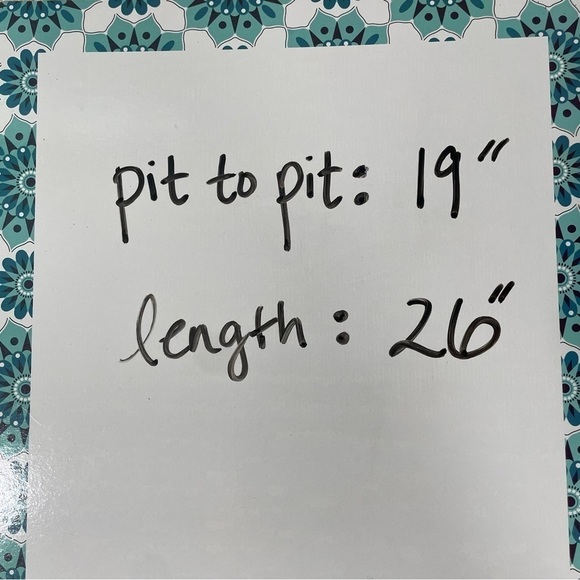 pit to pit: 19"
length: 26"